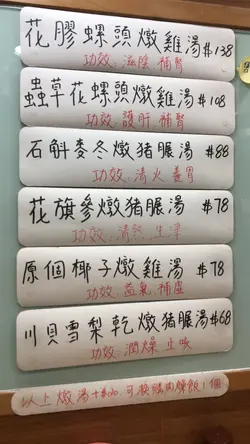 花膠螺頭燉雞湯 $138
功效：滋陰 補腎
蟲草花螺頭燉雞湯 $108
功效：護肝 補腎
石斛麥冬燉猪𦟌湯 $88
功效：清火 養胃
花旗參燉猪𦟌湯 $78
功效：清熱 生津
原個椰子燉雞湯 $78
功效：益氣 補虛
川貝雪梨乾燉猪𦟌湯 $68
功效：潤燥 止咳
以上燉湯+$20 可